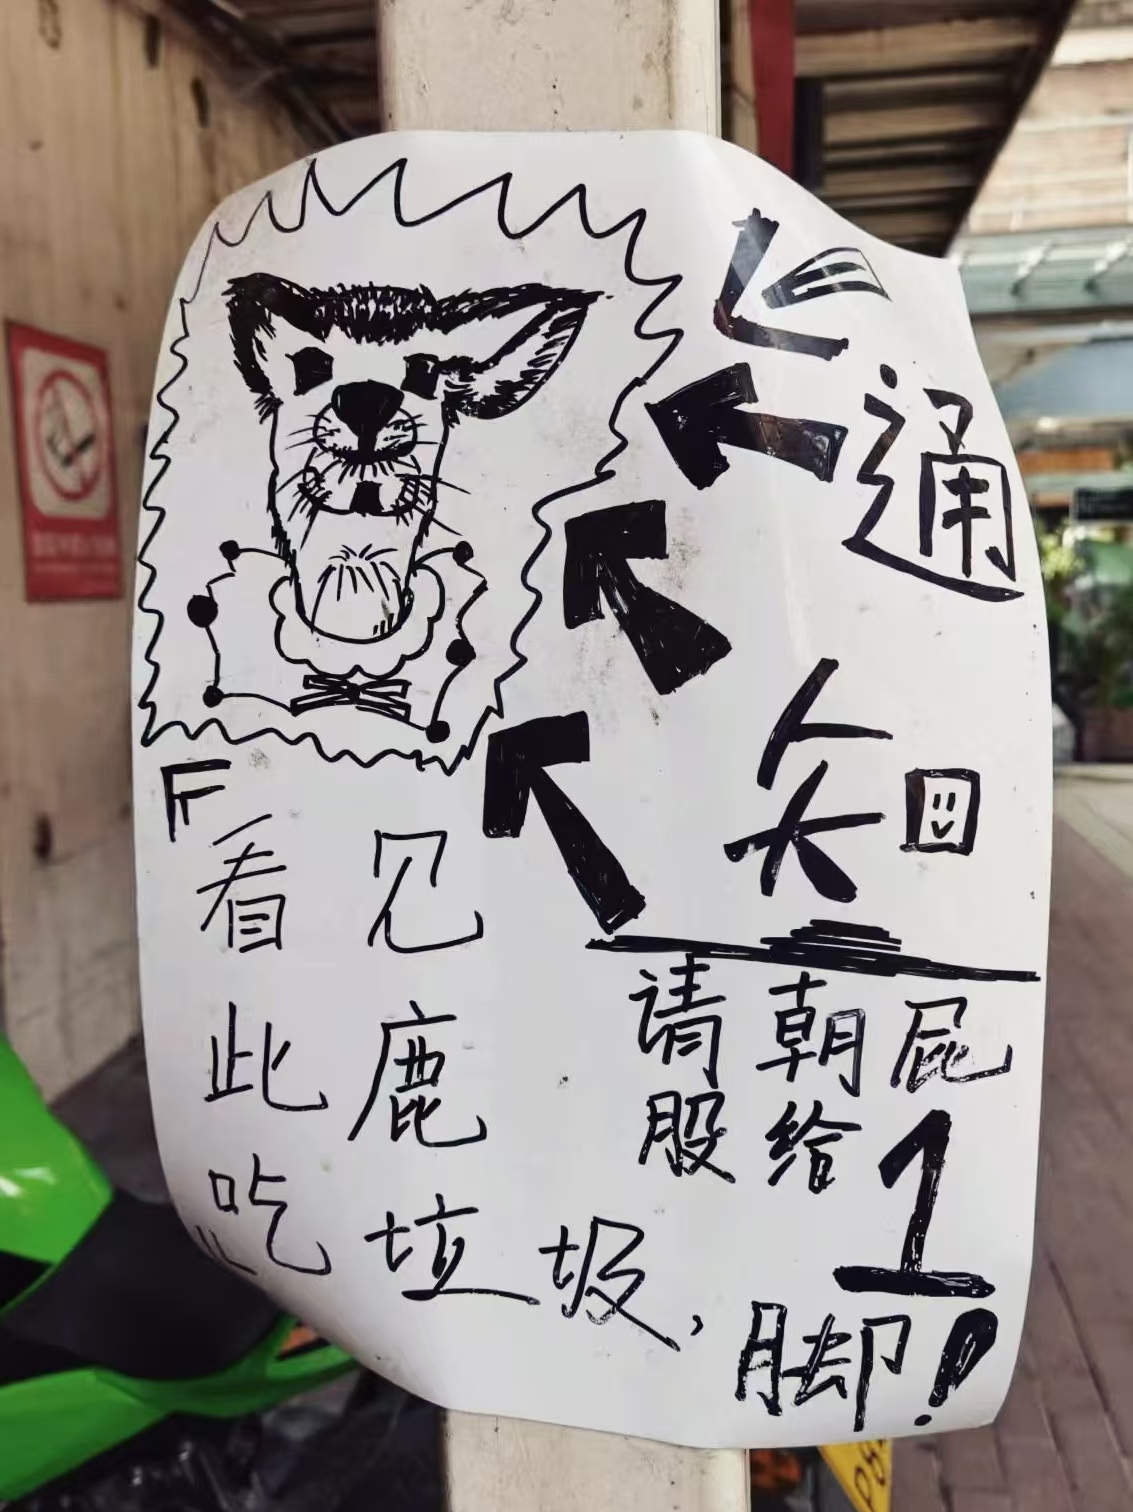 通知
看见
此鹿
吃垃圾,
请朝屁
股给1
脚!